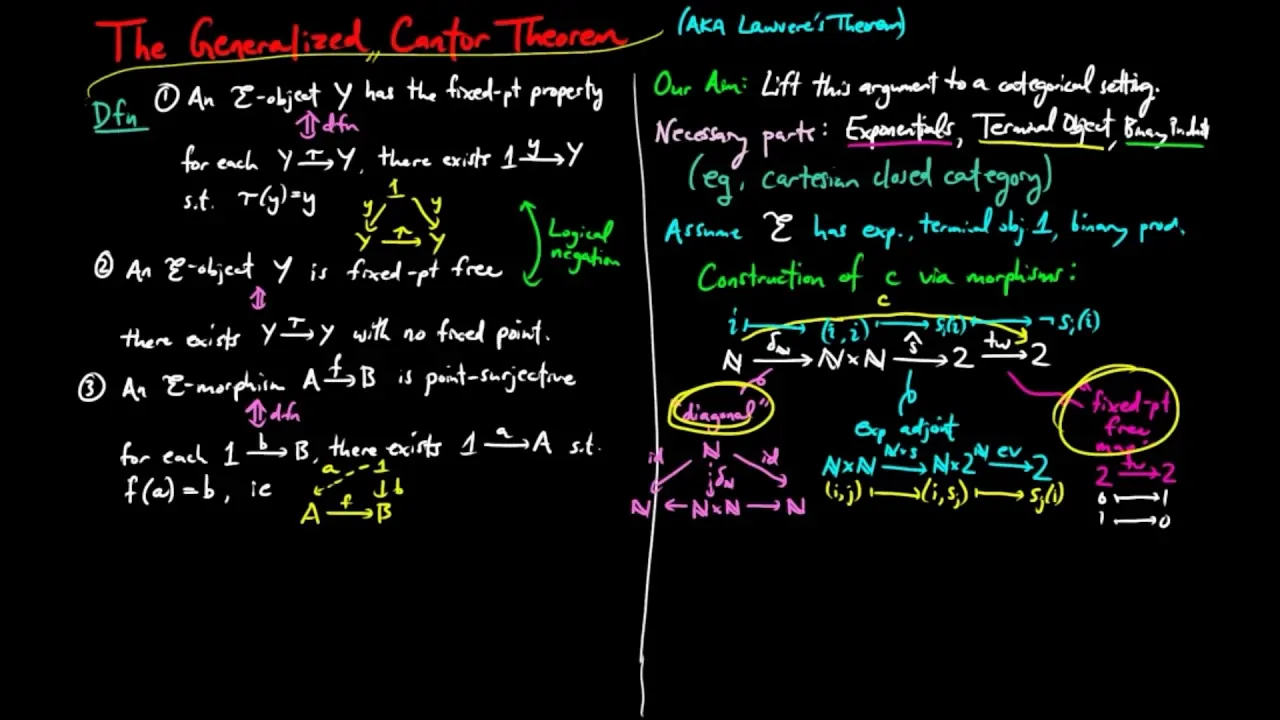 The Generalized Cantor Theorem
(AKA Lawvere's Theorem)
Dfn
① An ℰ-object Y has the fixed-pt property
⇕ dfn
for each Y →τ Y, there exists 1 →y Y
s.t. τ(y)=y
1
y y
Y →τ Y
② An ℰ-object Y is fixed-pt free
⇕
there exists Y →τ Y with no fixed point.
Logical
negation
③ An ℰ-morphism A →f B is point-surjective
⇕ dfn
for each 1 →b B, there exists 1 →a A s.t.
f(a)=b, ie
a 1
↓ b
A →f B
Our Aim: Lift this argument to a categorical setting.
Necessary parts: Exponentials, Terminal Object, Binary
(eg, cartesian closed category)
Assume ℰ has exp., terminal obj 1, binary prod.
Construction of c via morphisms:
c
i ↦ (i,i) ↦ sᵢ(i) ↦ ¬sᵢ(i)
ℕ →δ_ℕ ℕ×ℕ →ŝ 2 →tw 2
"diagonal"
ℕ
id ↓ δ_ℕ id
ℕ ← ℕ×ℕ → ℕ
exp adjoint
ℕ×ℕ →ℕ×s ℕ×2^ℕ →ev 2
(i,j) ↦ (i,sⱼ) ↦ sⱼ(i)
"fixed-pt
free
map"
2 →tw 2
0 ↦ 1
1 ↦ 0